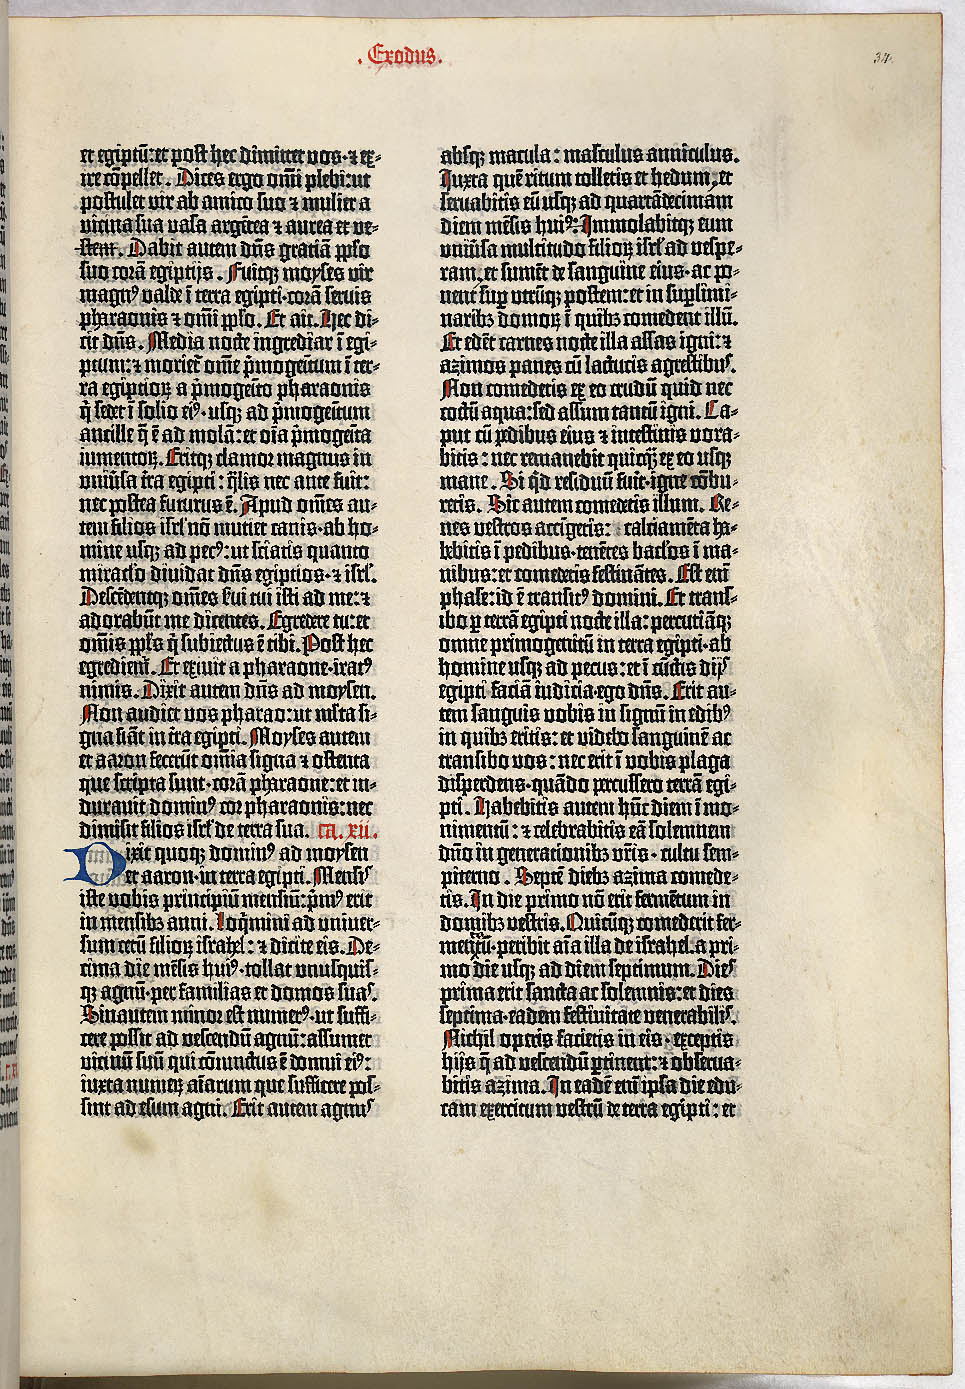 .Exodus.
34.
et egiptū: et post hec dimittet vos · ⁊ ex-
ire cōpellet. Dices ergo om̄i plebi: ut
postulet vir ab amico suo ⁊ mulier a
vicina sua vasa argētea ⁊ aurea et ve-
stem. Dabit autem dn̄s gratiā pp̄lo
suo corā egiptijs. Fuitqꝫ moyses vir
magnꝰ valde ī terra egipti · corā servis
pharaonis ⁊ om̄i pp̄lo. Et ait. Hec di-
cit dn̄s. Media nocte ingrediar ī egi-
ptum: ⁊ moriet̄ om̄e p̄mogenitum ī ter-
ra egiptioꝝ a p̄mogeīto pharaonis
q̄ sedet ī solio eiꝰ · usqꝫ ad p̄mogeītum
ancille q̄ ē ad molā: et oīa p̄mogeīta
iumentoꝝ. Eritqꝫ clamor magnus in
univ̄sa t̄ra egipti: q̄lis nec ante fuit:
nec postea futurus ē. Apud om̄es au-
tem filios isrl̄ nō mutiet canis · ab ho-
mine usqꝫ ad pecꝰ: ut sciatis quanto
miracl̄o dividat dn̄s egiptios · ⁊ isrl̄.
Descēdentqꝫ om̄es s̄vi tui isti ad me: ⁊
adorabūt me dicentes. Egredere tu: et
omīs pp̄ls q̄ subiectus ē tibi. Post hec
egrediem̄. Et exivit a pharaone · iratꝰ
nimis. Dixit autem dn̄s ad moysen.
Non audiet vos pharao: ut ml̄ta si-
gna fiāt in t̄ra egipti. Moyses autem
et aaron fecerūt om̄ia signa ⁊ ostenta
que scripta sunt · corā pharaone: et in-
duravit dominꝰ cor pharaonis: nec
dimisit filios isrl̄ de terra sua. ca. xii.
Dixit quoqꝫ dominꝰ ad moysen
et aaron · in terra egipti. Mensis
iste vobis principiū mensiū: p̄mꝰ erit
in mensibꝫ anni. Loq̄mini ad univer-
sum cetū filioꝝ israhel: ⁊ dicite eis. De-
cima die mēsis huiꝰ · tollat unusquis-
qꝫ agnū · per familias et domos suas.
Sin autem minor est numerꝰ · ut suffi-
cere possit ad vescendū agnū: assumet
vicinū suū qui cōiunctus ē domui eiꝰ:
iuxta numeꝝ aīarum que sufficere pos-
sint ad esum agni. Erit autem agnus
absqꝫ macula: masculus anniculus.
Iuxta quē ritum tolletis et hedum, et
servabitis eū usqꝫ ad quartādecimam
diem mēsis huiꝰ. Immolabitqꝫ eum
univ̄sa multitudo filioꝝ isrl̄ ad vespe-
ram, et sumēt de sanguine eius · ac po-
nent sup̄ utrūqꝫ postem: et in sup̄limi-
naribꝫ domoꝝ ī quibꝫ comedent illū.
Et edēt carnes nocte illa assas igni: ⁊
azimos panes cū lactucis agrestibus.
Non comedetis ex eo crudū quid nec
coctū aqua: sed assum tantū igni. Ca-
put cū pedibus eius ⁊ intestinis vora-
bitis: nec remanebit quicq̄ꝫ ex eo usqꝫ
mane. Si q̄d residuū fuit · igne cōbu-
retis. Sic autem comedetis illum. Re-
nes vestros accīgetis: calciamēta ha-
bebitis ī pedibus · tenētes bacl̄os ī ma-
nibus: et comedetis festinātes. Est enī
phase: id ē transitꝰ domini. Et trans-
ibo ꝑ terrā egipti nocte illa: percutiāqꝫ
omne primogenitū in terra egipti · ab
homine usqꝫ ad pecus: et ī cūctis dijs
egipti faciā iudicia · ego dn̄s. Erit au-
tem sanguis vobis in signū in edibꝰ
in quibꝫ eritis: et videbo sanguinē ac
transibo vos: nec erit ī vobis plaga
disperdens · quādo percussero terrā egi-
pti. Habebitis autem hūc diem ī mo-
nimentū: ⁊ celebrabitis eā solemnem
dn̄o in generationibꝫ vr̄is · cultu sem-
piterno. Septē diebꝫ azima comede-
tis. In die primo nō erit fermētum in
domibꝫ vestris. Quicūqꝫ comederit fer-
mētatū · peribit aīa illa de israhel · a pri-
mo die usqꝫ ad diem septimum. Dies
prima erit sancta ac solemnis: et dies
septima · eadem festivitate venerabilis.
Nichil operis facietis in eis · exceptis
hijs q̄ ad vescendū ꝑtinent: ⁊ observa-
bitis azima. In eadē enī ipsa die edu-
cam exercitum vestrū de terra egipti: et